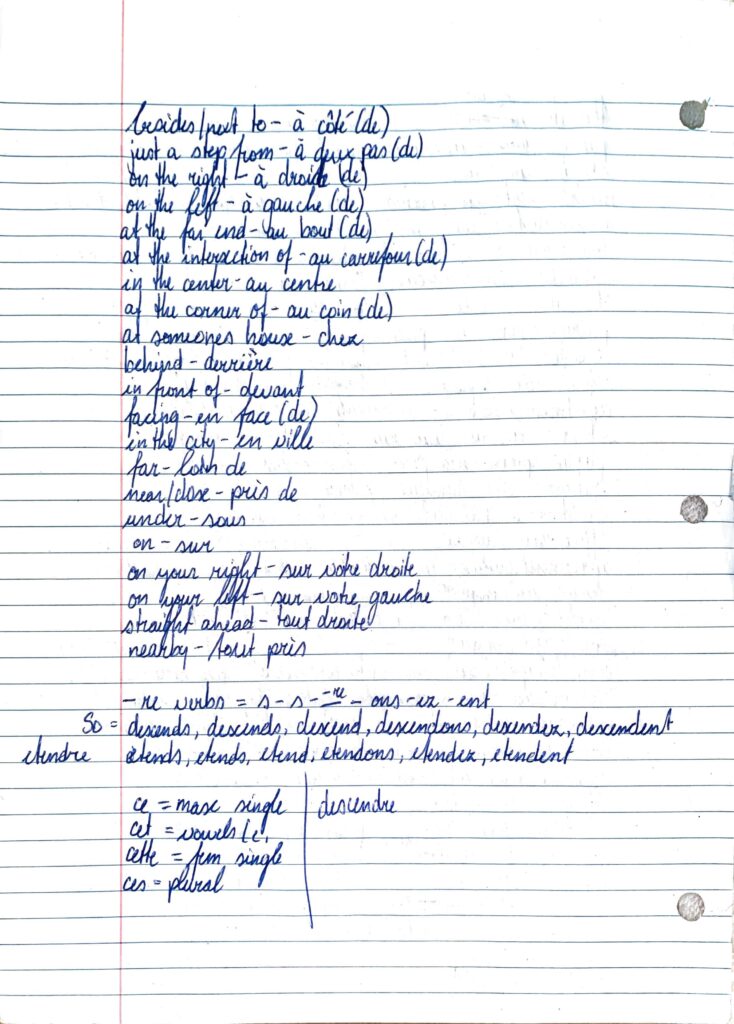 besides/next to - à côté (de)
just a step from - à deux pas (de)
on the right - à droite (de)
on the left - à gauche (de)
at the far end - au bout (de)
at the intersection of - au carrefour (de)
in the center - au centre
at the corner of - au coin (de)
at someones house - chez
behind - derrière
in front of - devant
facing - en face (de)
in the city - en ville
far - loin de
near/close - près de
under - sous
on - sur
on your right - sur votre droite
on your left - sur votre gauche
straight ahead - tout droite
nearby - tout près
-re verbs = s - s - -re - ons - ez - ent
So = descends, descends, descend, descendons, descendez, descendent
etendre etends, etends, etend, etendons, etendez, etendent
ce = masc single descendre
cet = vowels (e,
cette = fem single
ces = plural